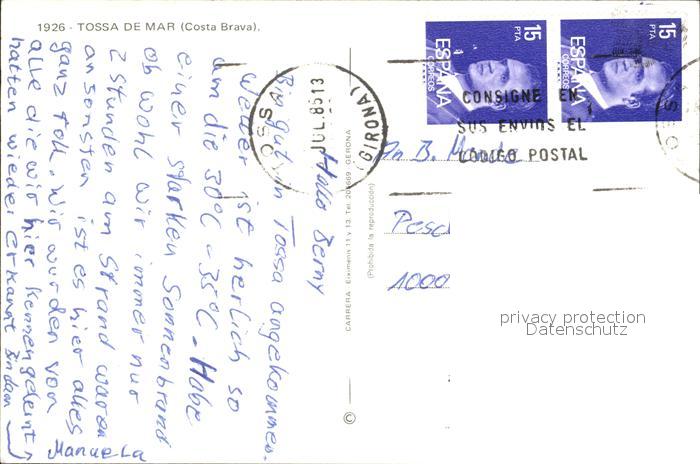 1926 - TOSSA DE MAR (Costa Brava).
Hallo Berny
Bin gut in Tossa angekommen.
Wetter ist herlich so
um die 30°C - 35°C - Habe
einer starken Sonnenbrand
obwohl wir immer nur
2 stunden am Strand waren
ansonsten ist es hier alles
ganz toll. Wir wurden von
alle die wir hier kennengelernt
hatten wieder erkannt
Manuela
CARRERA. Eiximenis 11 y 13. Tel. 201669. GERONA
(Prohibida la reproducción)
©
15
PTA
ESPAÑA
CORREOS
15
PTA
ESPAÑA
CORREOS
TOSSA
JUL. 85 13
(GIRONA)
CONSIGNE EN
SUS ENVIOS EL
CODIGO POSTAL
An B.
Pesc
1000
privacy protection
Datenschutz